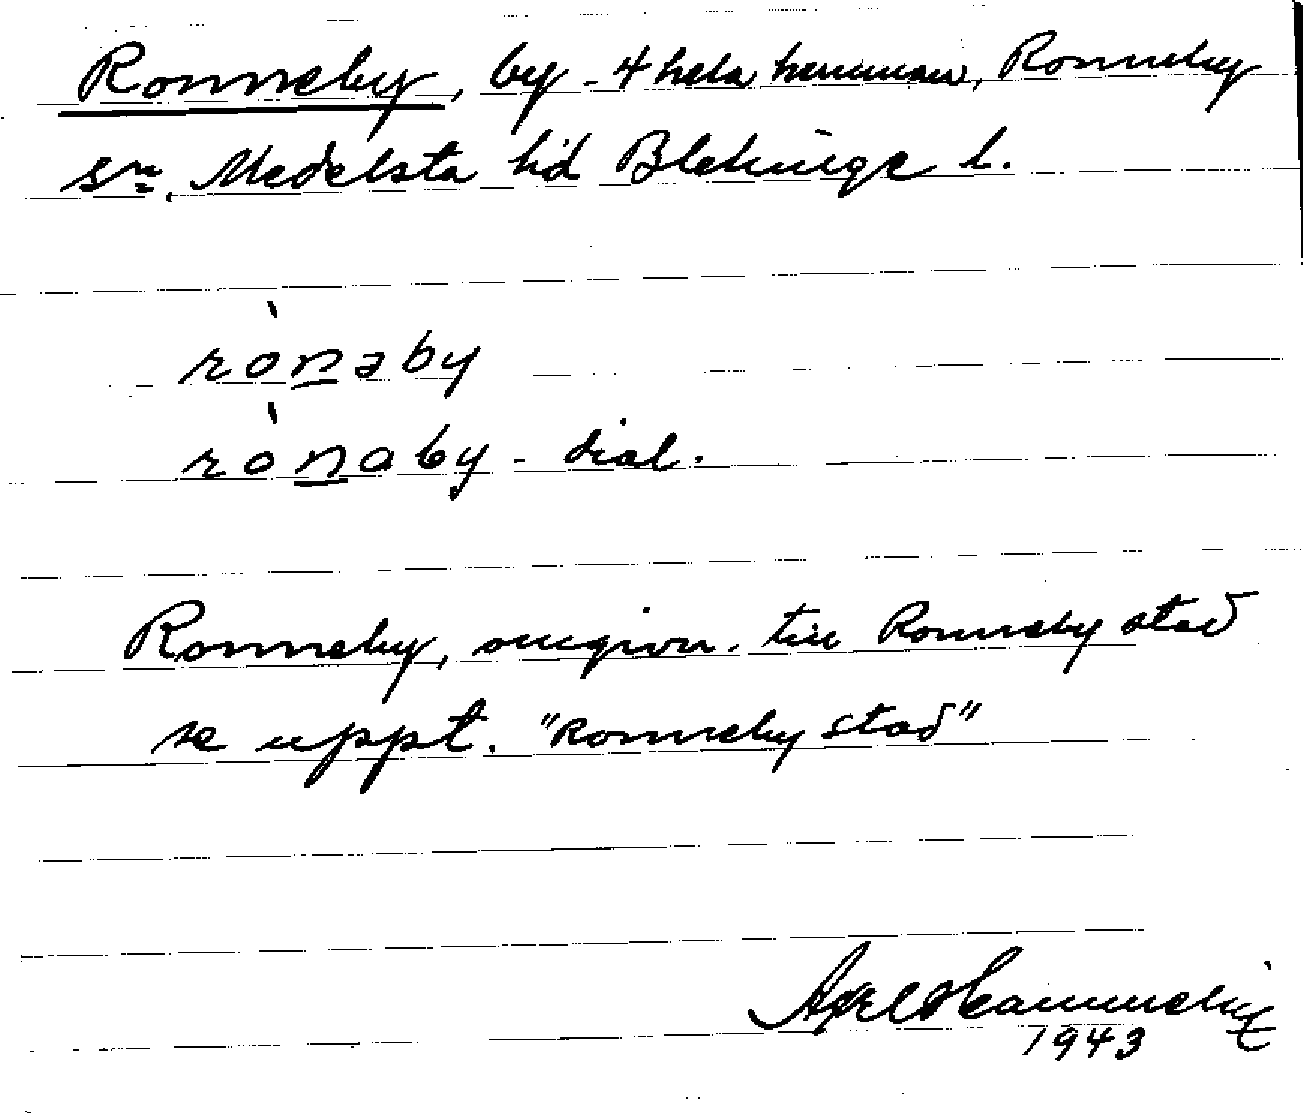 Ronneby, by - 4 hela hemman, Ronneby
sn. Medelsta hd Blekinge l.
rònəby
rònaby - dial.
Ronneby, omgivn. till Ronneby stad
se uppt. "Ronneby stad"
Axel
1943